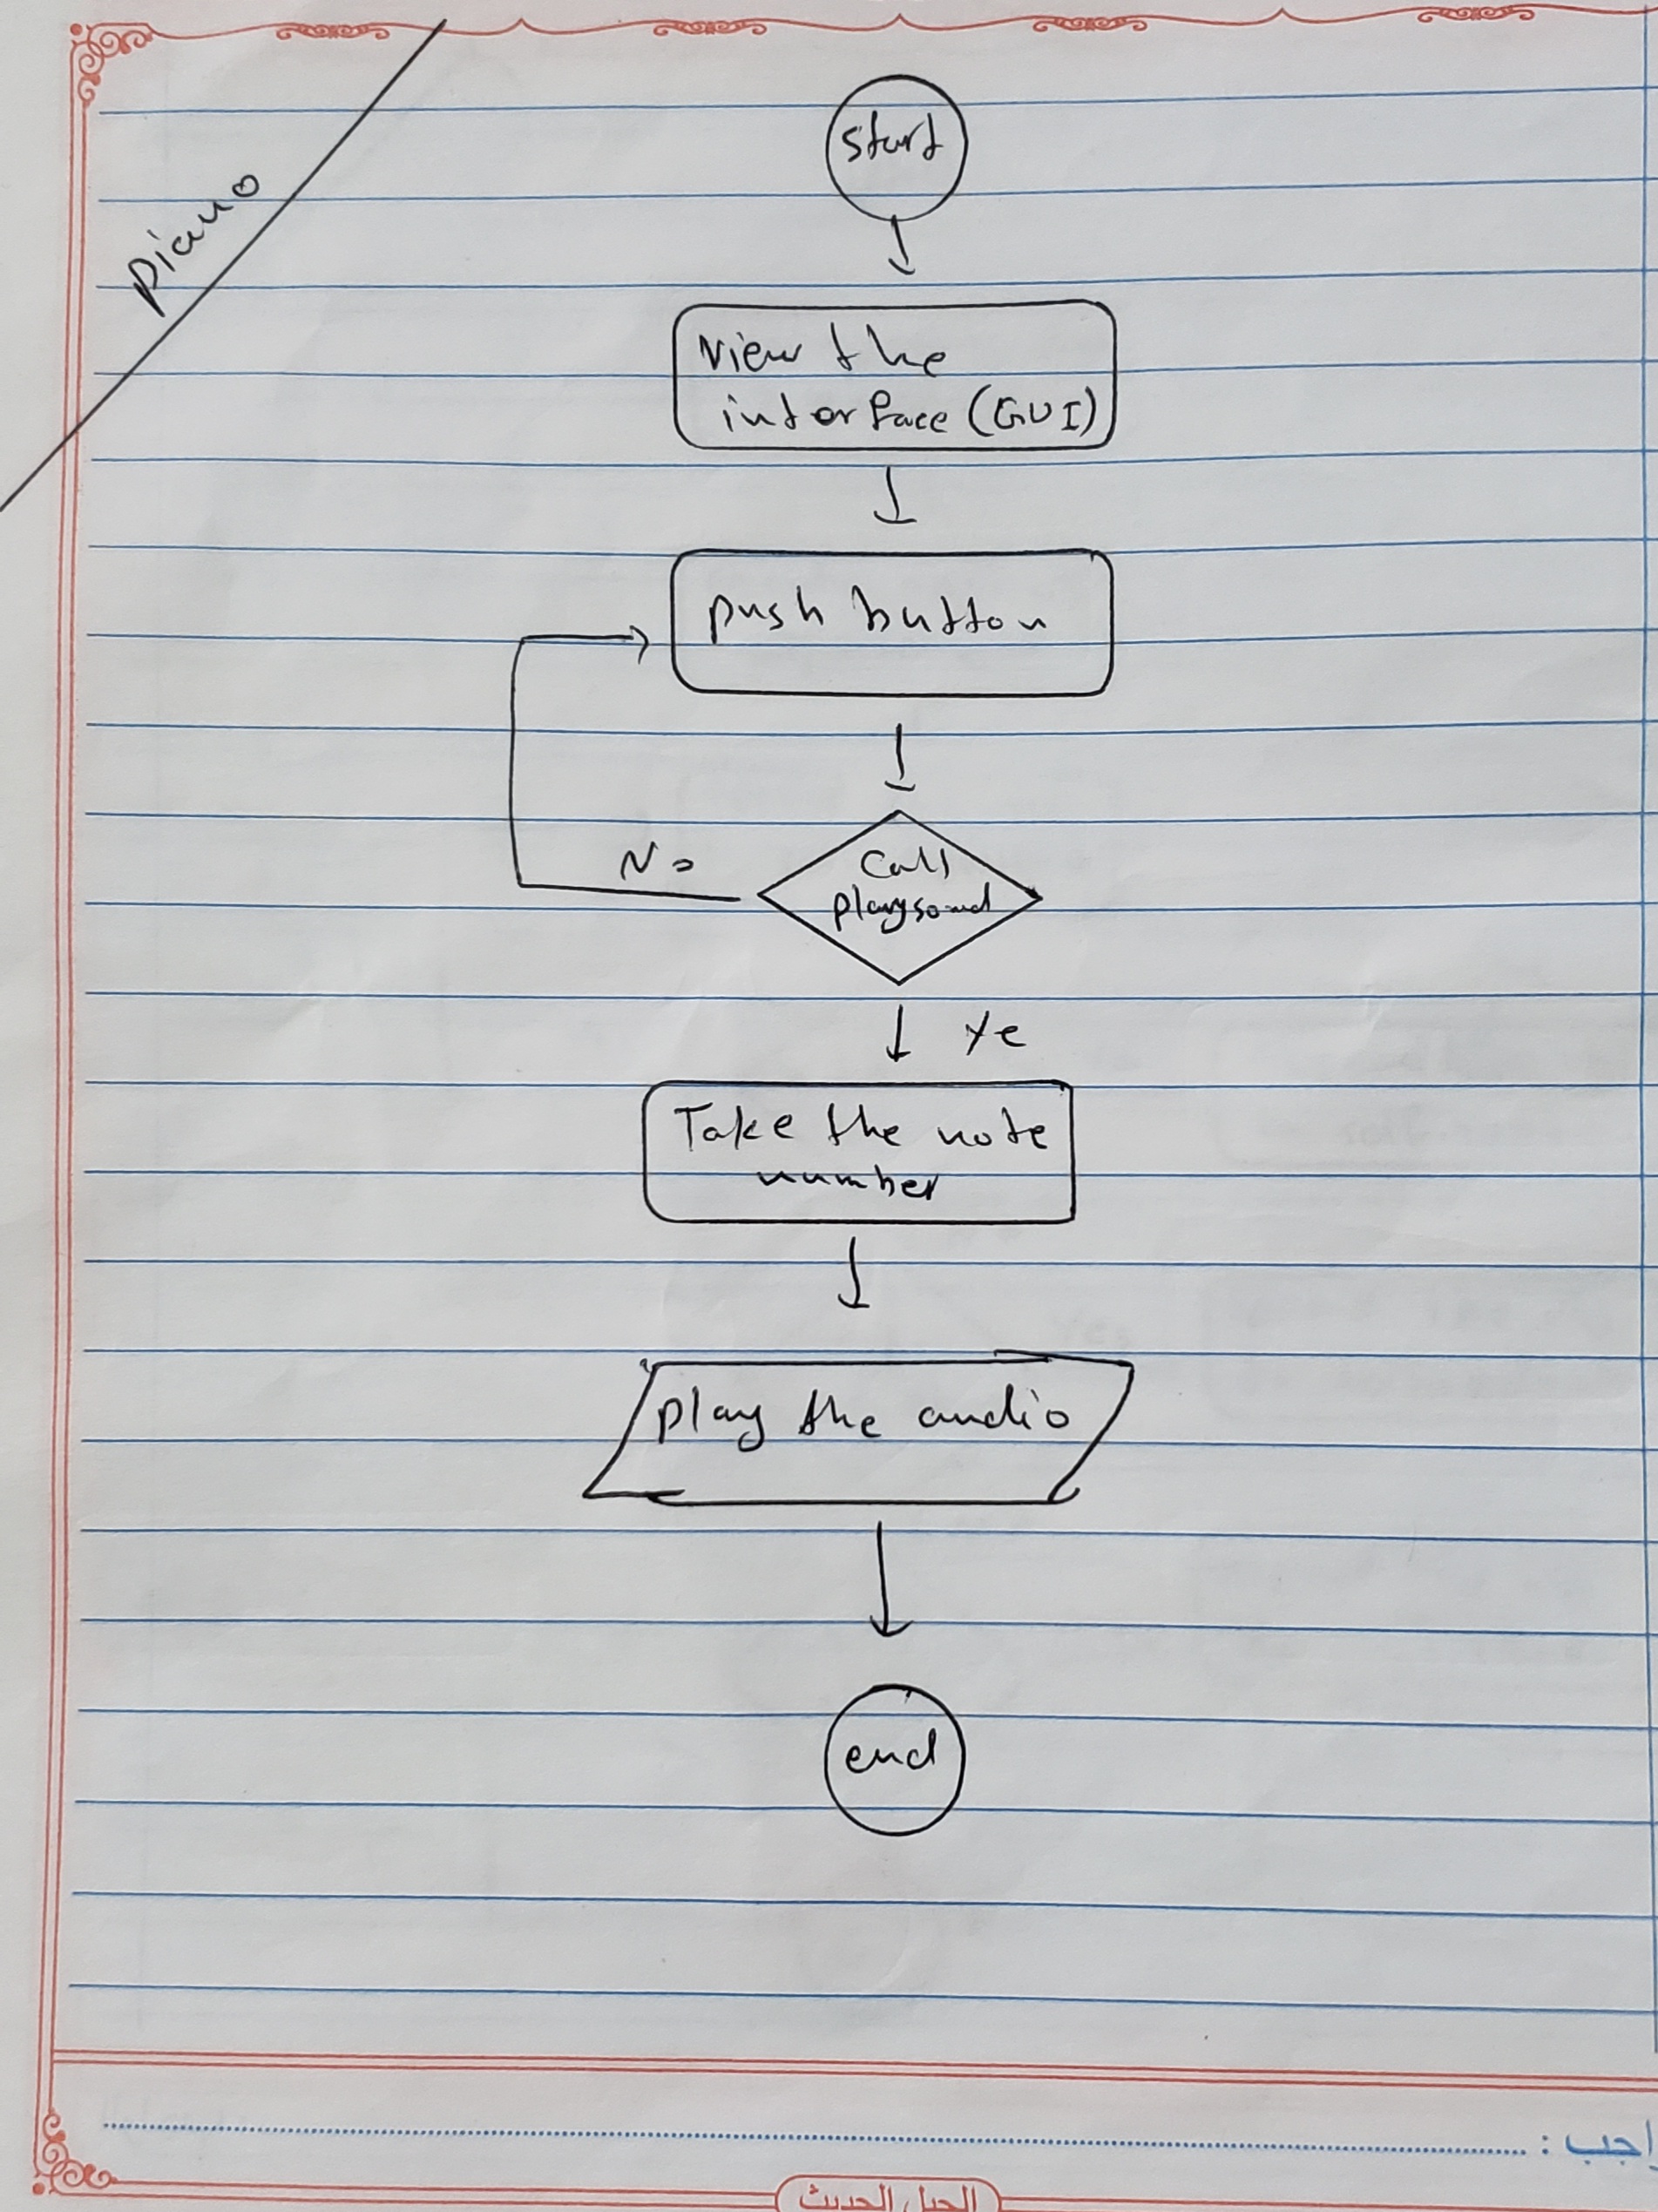 piano
start
View the
interface (GUI)
push button
No
Call
playsound
Ye
Take the note
number
play the audio
end
الجيل الحديث